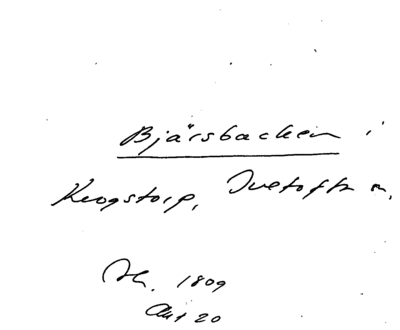 Bjärsbacken i
Krogstorp, Ivetofta sn.
Sk. 1809
Akt 20